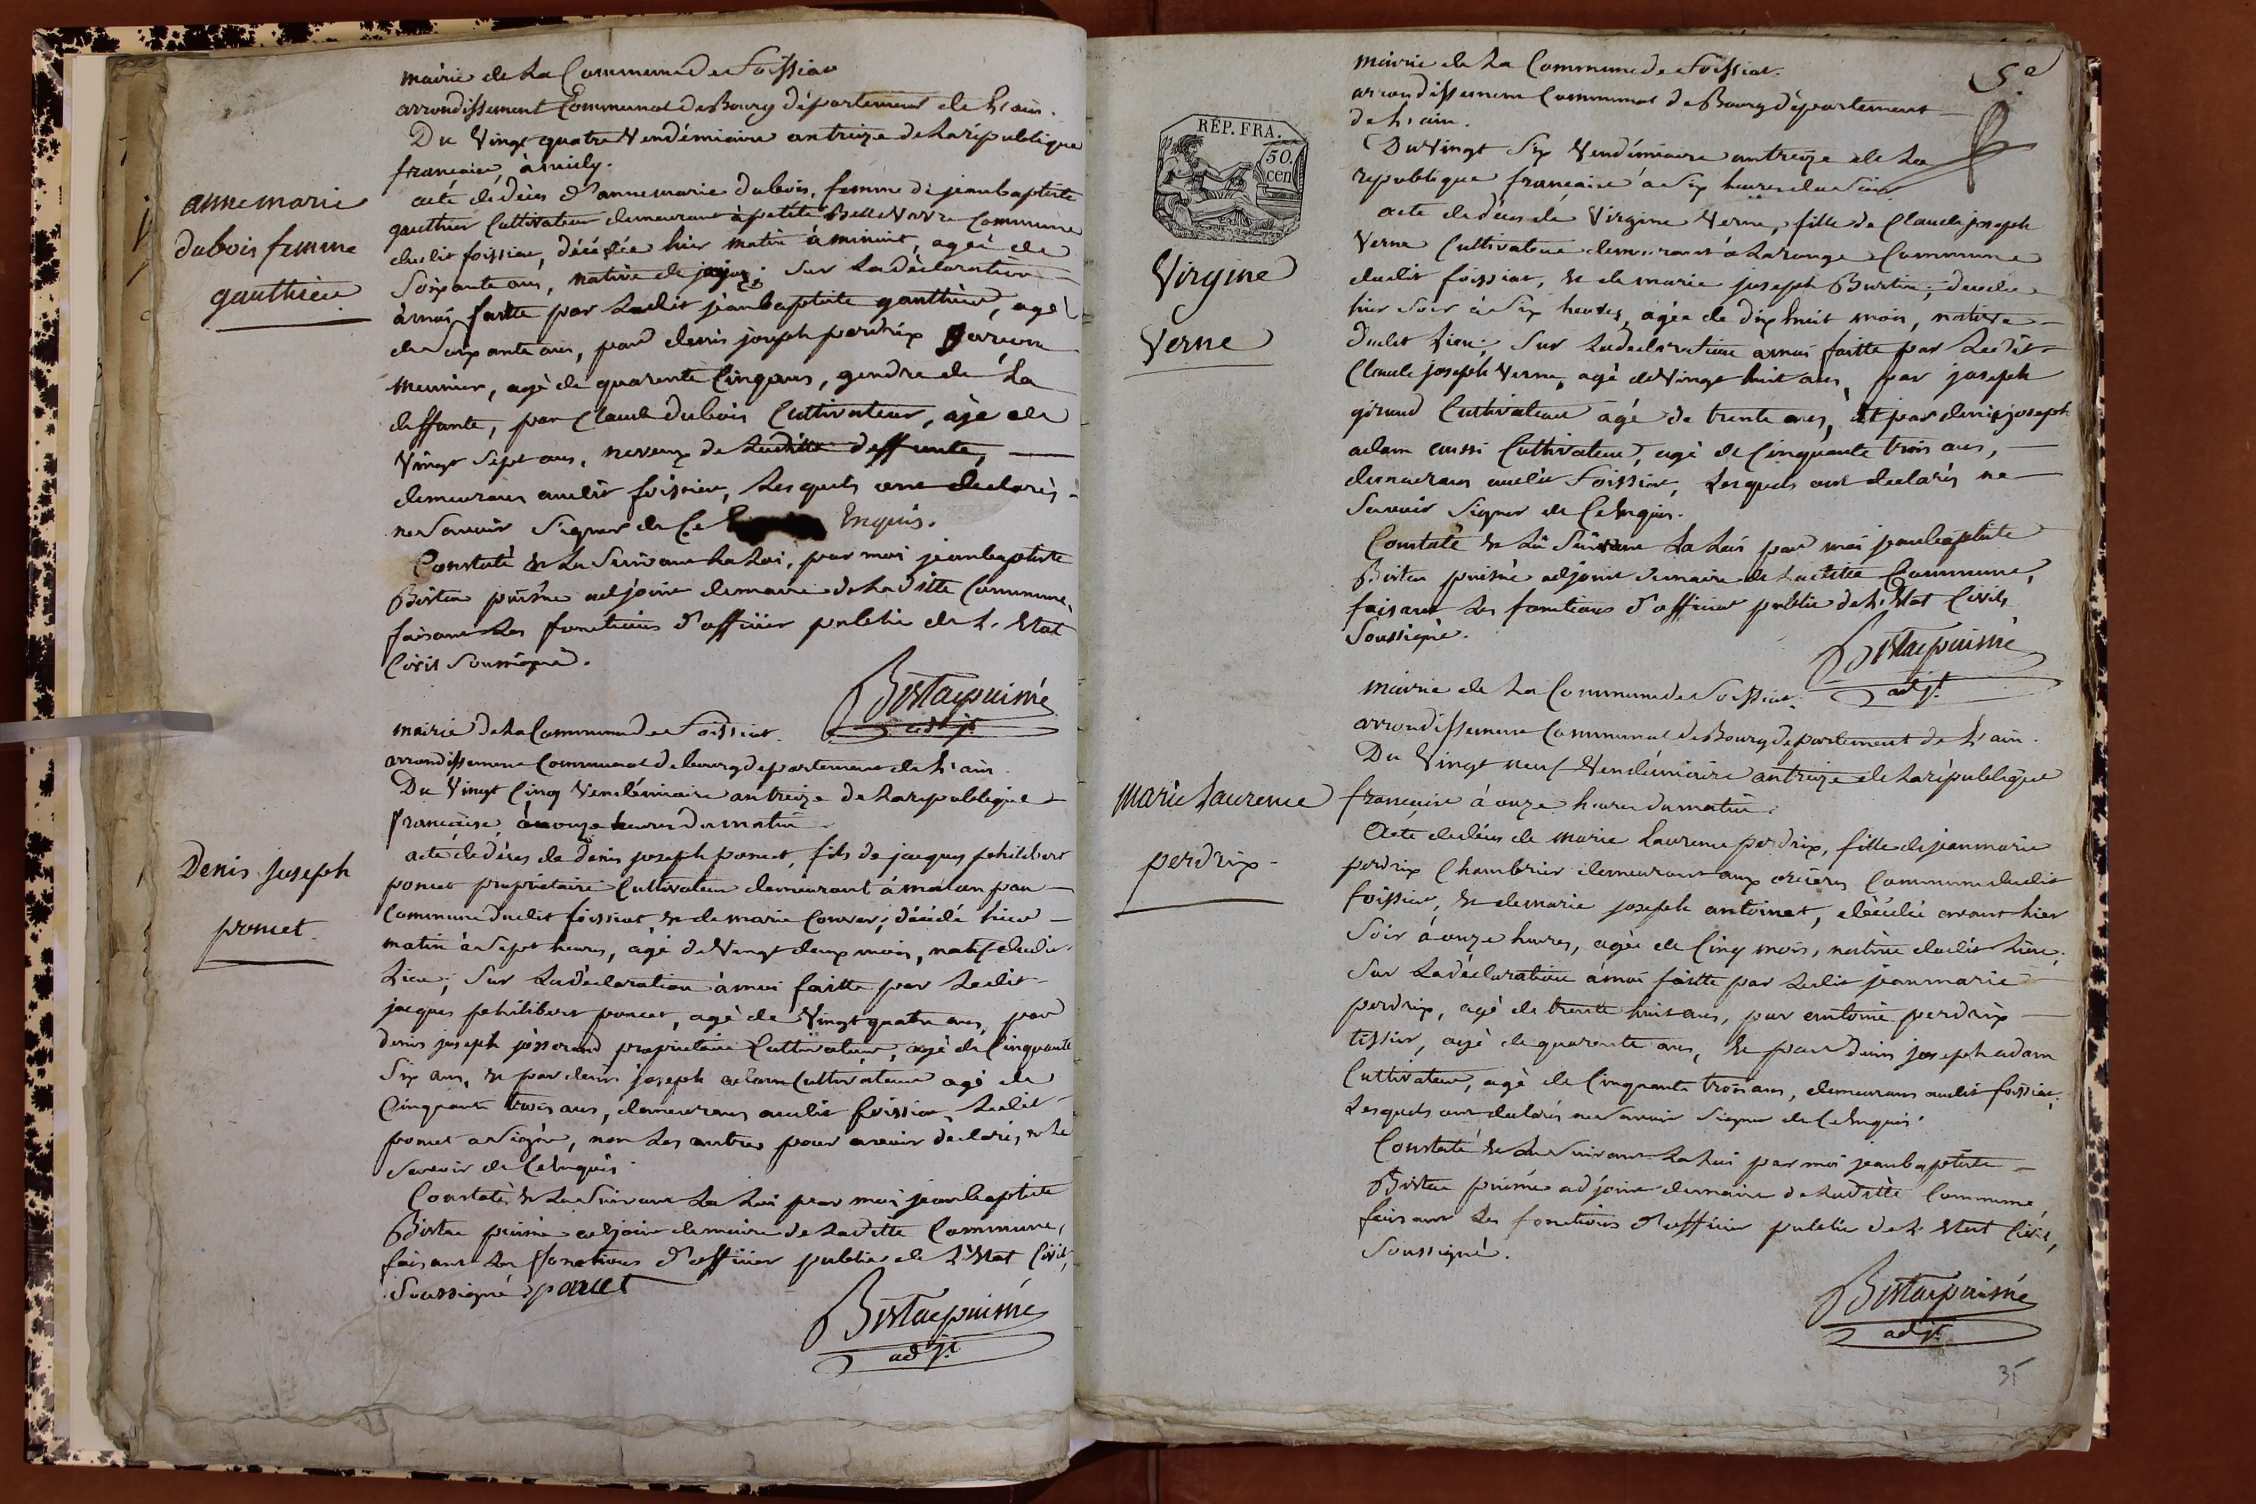 mairie de La Commune de Foissiat
arrondissement Communal de Bourg département de L'ain.
Du Vingt quatre Vendémiaire an treize de La république
francaise, à midy.
anne marie
dubois femme
gauthier
acte de déces d'anne marie dubois, femme de jean baptiste
gauthier Cultivateur demeurant à petite Commune
dudit foissiat, décédée hier matin à minuit, agée de
Soixante ans, native de Sur La déclaration
à moi faitte par Ledit jean baptiste gauthier, agé
de Soixante ans, par denis joseph perdrix garcon
meunier, agé de quarente Cinq ans, gendre de La
deffunte, par Claude dubois Cultivateur, age de
Vingt Sept ans, neveux de Laditte deffunte,
demeurans audit foissiat, Lesquels ont declarés
ne Savoir Signer de Ce Enquis.
Constaté Suivant La Loi, par moi jean baptiste
puisné adjoint demaire de Laditte Commune,
faisant Les fonctions d'officier public de L'Etat
Civil Soussigné.
puisné
adjt
mairie de La Commune de Foissiat
arrondissement Communal de bourg departement de L'ain.
Du Vingt Cinq Vendémiaire an treize de La republique
francaise, à onze heures du matin
Denis joseph
poncet
acte de déces de denis joseph poncet, fils de jacques philibert
poncet propriétaire Cultivateur demeurant à
Commune dudit foissiat, & de marie décédé hier
matin à Sept heures, agé de Vingt deux mois, natif dudit
Lieu; Sur La déclaration à moi faitte par Ledit
jacques philibert poncet, agé de Vingt quatre ans, par
denis joseph josserand propriétaire Cultivateur, agé de Cinquante
Six ans, & par denis joseph adam Cultivateur agé de
Cinquante trois ans, demeurans audit foissiat, Ledit
poncet a Signé, non Les autres pour avoir déclaré, ne Le
Savoir de Ce Enquis.
Constaté Suivant La Loi par moi jean baptiste
puisné adjoint demaire de Laditte Commune,
faisant Les fonctions d'officier public de L'Etat Civil,
Soussigné poncet
puisné
adjt
5e
RÉP. FRA.
50.
cen
mairie de La Commune de Foissiat.
arrondissement Communal de Bourg département
de L'ain.
Du Vingt Six Vendémiaire an treize de La
republique francaise à Six heures du Soir
Virgine
Verne
acte de déces de Virgine Verne, fille de Claude joseph
Verne Cultivateur demeurant à Commune
dudit foissiat, & de marie joseph décédée
hier Soir à Six heures, agée de dix huit mois, native
dudit Lieu; Sur La declaration à moi faitte par Ledit
Claude joseph Verne, agé de Vingt huit ans, par joseph
giraud Cultivateur agé de trente ans, et par denis joseph
adam aussi Cultivateur, agé de Cinquante trois ans,
demeurans audit Foissiat, Lesquels ont declarés ne
Savoir Signer de Ce Enquis.
Constaté Suivant La Loi par moi jean baptiste
puisné adjoint demaire de Laditte Commune,
faisant Les fonctions d'officier public de L'Etat Civil,
Soussigné.
puisné
adjt
mairie de La Commune de Foissiat.
arrondissement Communal de Bourg departement de L'ain.
Du Vingt neuf Vendémiaire an treize de La république
francaise à onze heures du matin.
marie Laurence
perdrix
Acte de déces de marie Laurence perdrix, fille de jean marie
perdrix Chambrier demeurant aux Commune dudit
foissiat, & de marie joseph antoinet, décédée avant hier
Soir à onze heures, agée de Cinq mois, native dudit Lieu;
Sur La déclaration à moi faitte par Ledit jean marie
perdrix, agé de trente huit ans, par antoine perdrix
tissier, agé de quarente ans, & par denis joseph adam
Cultivateur, agé de Cinquante trois ans, demeurans audit foissiat,
Lesquels ont declarés ne Savoir Signer de Ce Enquis.
Constaté Suivant La Loi par moi jean baptiste
puisné adjoint demaire de Laditte Commune
faisant Les fonctions d'officier public de L'Etat Civil,
Soussigné.
puisné
adjt
35